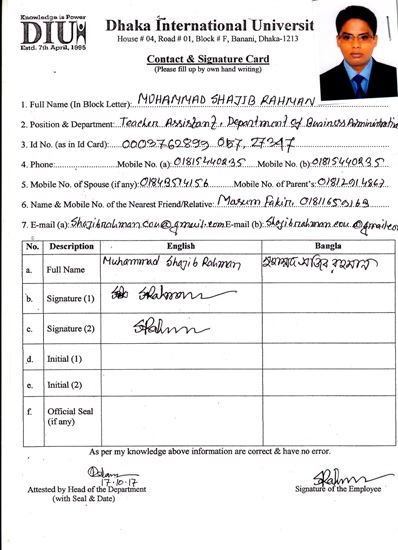 Knowledge is Power
DIU
Estd. 7th April, 1995
Dhaka International Universit
House # 04, Road # 01, Block # F, Banani, Dhaka-1213
Contact & Signature Card
(Please fill up by own hand writing)
1. Full Name (In Block Letter): MUHAMMAD SHAJIB RAHMAN
2. Position & Department: Teacher Assistant, Department of Business Administration
3. Id No. (as in Id Card): 0003762899 057, 27347
4. Phone: Mobile No. (a): 01815440235 Mobile No. (b) 01815440235
5. Mobile No. of Spouse (if any): Mobile No. of Parent's:
6. Name & Mobile No. of the Nearest Friend/Relative: Masum Fakir,
7. E-mail (a): Shajibrahman.cou@gmail.com E-mail (b): Shajibrahman.cou@gmail.co
No. Description English Bangla
a. Full Name Muhammad Shajib Rahman মুহাম্মদ সাজিব রহমান
b. Signature (1) SRahman
c. Signature (2) SRahman
d. Initial (1)
e. Initial (2)
f. Official Seal
(if any)
As per my knowledge above information are correct & have no error.
17.10.17
SRahman
Attested by Head of the Department Signature of the Employee
(with Seal & Date)